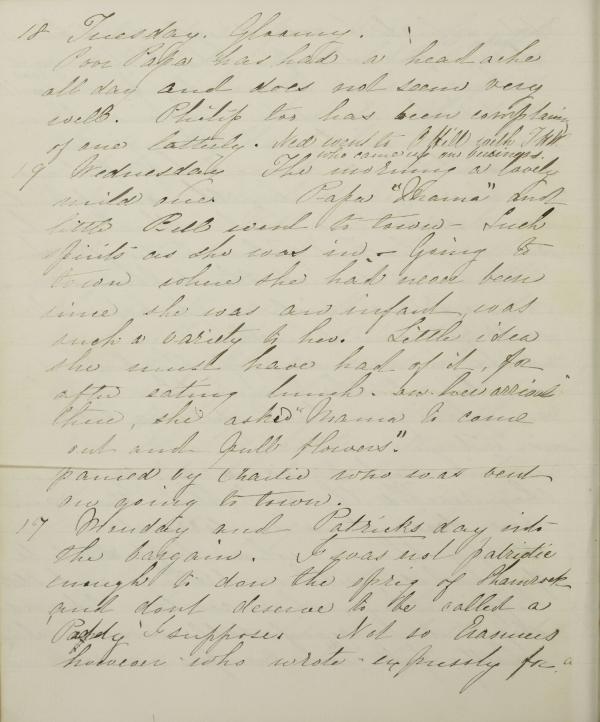 18 Tuesday. Gloomy.
Poor Papa has had a head ache
all day and does not seem very
well. Philip too has been complain
of one latterly. Ned went to Hill with
who came up on business.
19 Wednesday The morning a lovely
mild one Papa "Mama" and
little went to town - Such
spirits as she was in - Going to
town where she had never been
since she was an infant was
such a variety to her. Little idea
she must have had of it, for
after eating lunch. on her arrival
there, she asked "Mama to come
out and pull flowers".
panied by Charlie who was bent
on going to town.
17 Monday and Patricks day into
the bargain. I was not patriotic
enough to don the sprig of Shamrock
and dont deserve to be called a
'Paddy' I suppose. Not so Erasmus
however who wrote expressly for a